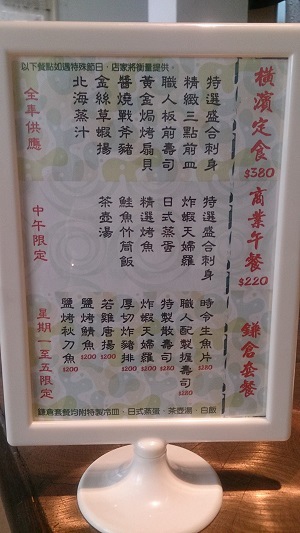 以下餐點如遇特殊節日，店家將衡量提供。
橫濱定食
$380
特選盛合刺身
精緻三點前皿
職人板前壽司
黃金焗烤扇貝
醬燒戰斧豬
金絲草蝦揚
北海蒸汁
全年供應
商業午餐
$220
特選盛合刺身
炸蝦天婦羅
日式蒸蛋
精選烤魚
鮭魚竹筒飯
茶壺湯
中午限定
鎌倉套餐
時令生魚片
$280
職人配製握壽司
$280
特製散壽司
$280
炸蝦天婦羅
$200
厚切炸豬排
$200
若雞唐揚
$200
鹽烤鯖魚
$200
鹽烤秋刀魚
$200
星期一至五限定
鎌倉套餐均附特製冷皿、日式蒸蛋、茶壺湯、白飯